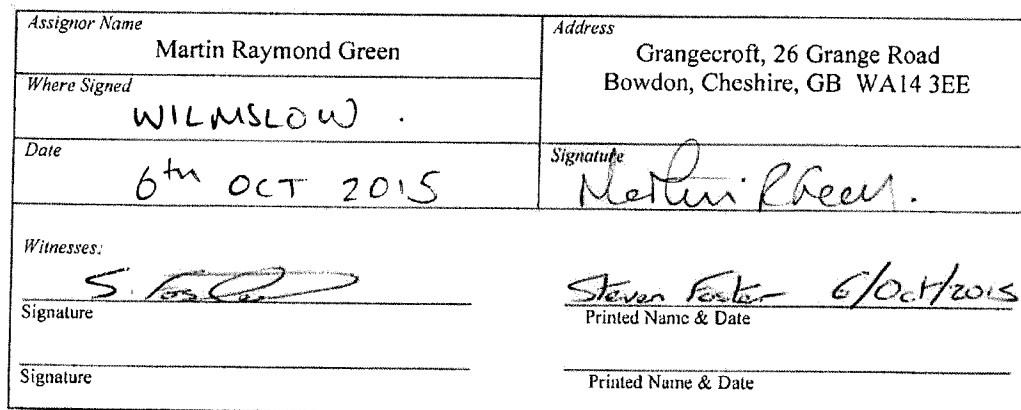 Assignor Name
Martin Raymond Green
Address
Grangecroft, 26 Grange Road
Bowdon, Cheshire, GB WA14 3EE
Where Signed
WILMSLOW .
Date
6th OCT 2015
Signature
Martin R Green.
Witnesses:
S. Foster
Signature
Steven Foster 6/Oct/2015
Printed Name & Date
Signature
Printed Name & Date